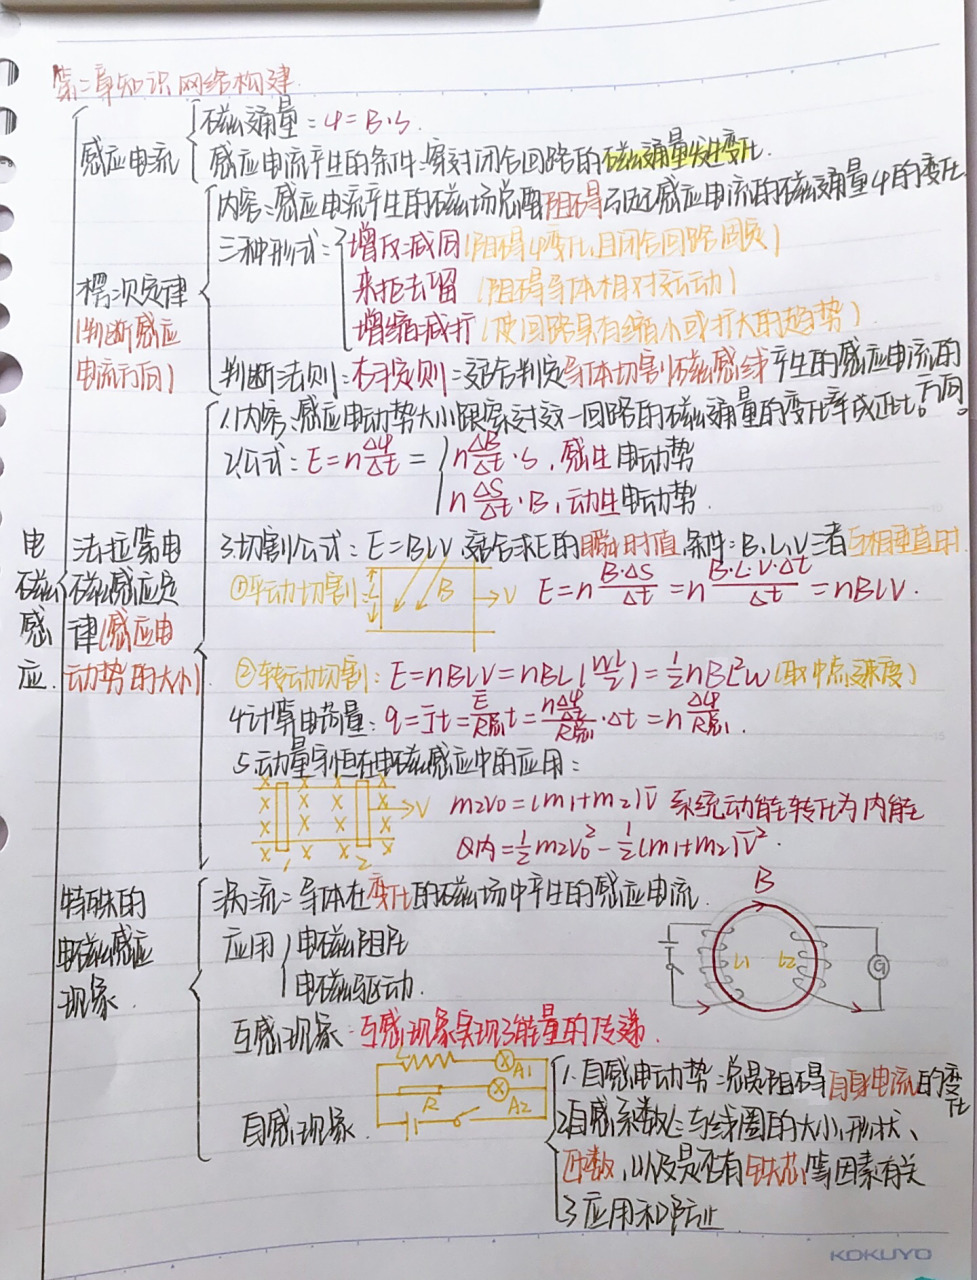 第二章知识网络构建.
磁通量:φ=B·S.
感应电流
感应电流产生的条件:穿过闭合回路的磁通量发生变化.
内容:感应电流产生的磁场总要阻碍引起感应电流的磁通量φ的变化
三种形式:
增反减同(阻碍φ变化,且闭合回路固定)
来拒去留 (阻碍导体相对运动)
增缩减扩(使回路具有缩小或扩大的趋势)
楞次定律
(判断感应
电流方向)
判断法则:右手定则:适合判定导体切割磁感线产生的感应电流的方向
1.内容:感应电动势大小跟穿过这一回路的磁通量的变化率成正比。
2.公式:E=nΔφ/Δt=
nΔB/Δt·S,感生电动势
nΔS/Δt·B,动生电动势
电磁感应
法拉第电
磁感应定
律(感应电
动势的大小)
3.切割公式:E=BLV,适合求E的瞬时值,条件:B、L、V三者互相垂直时.
①平动切割:
B
V
E=n B·ΔS/Δt=n B·L·V·Δt/Δt=nBLV.
②转动切割:E=nBLV=nBL(WL/2)=½nBL²w(取中点速度)
4.计算电荷量:q=Īt=Ē/R总 t=nΔφ/Δt/R总·Δt=nΔφ/R总.
5.动量守恒在电磁感应中的应用:
x x x x
V
1 2
m₂V₀=(m₁+m₂)V̄ 系统动能转化为内能
Q内=½m₂V₀²-½(m₁+m₂)V̄².
特殊的
电磁感应
现象.
涡流:导体在变化的磁场中产生的感应电流.
应用
电磁阻尼
电磁驱动.
B
L1 L2
G
互感现象:互感现象实现了能量的传递.
自感现象.
A1
R A2
1.自感电动势:总是阻碍自身电流的变化
2自感系数L:与线圈的大小、形状、
匝数,以及是否有铁芯等因素有关
3应用和防止
KOKUYO